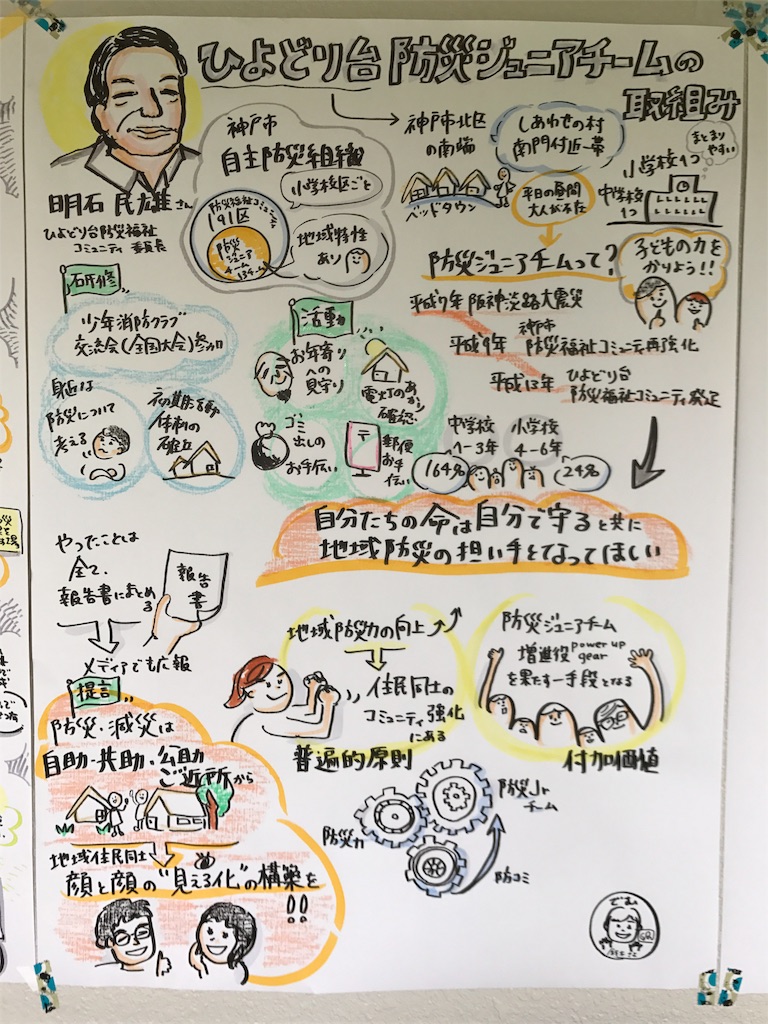 ひよどり台 防災ジュニアチームの
取組み
明石 民雄さん
ひよどり台防災福祉
コミュニティ 委員長
神戸市
自主防災組織
小学校区ごと
防災福祉コミュニティ
191区
防災
ジュニア
チーム
地域特性
あり
神戸市北区
の南端
しあわせの村
南門付近一帯
ベッドタウン
平日の昼間
大人が不在
まとまり
やすい
小学校1つ
中学校
1つ
防災ジュニアチームって?
子どもの力を
かりよう!!
平成7年 阪神淡路大震災
平成9年 神戸市
防災福祉コミュニティ再強化
平成13年 ひよどり台
防災福祉コミュニティ発足
研修
少年消防クラブ
交流会(全国大会)参加
身近な
防災について
考える
初期活動
体制の
確立
活動
お年寄り
への
見守り
電灯のあかり
確認
ゴミ
出しの
お手伝い
〒
郵便
お手
伝い
中学校
1-3年
164名
小学校
4-6年
24名
自分たちの命は自分で守ると共に
地域防災の担い手となってほしい
やったことは
全て、
報告書にまとめる
報告
書
メディアでも広報
地域防災力の向上
住民同士の
コミュニティ強化
にある
普遍的原則
防災ジュニアチーム
増進役 power up
gear
を果たす一手段となる
付加価値
提言
防災・減災は
自助・共助・公助
ご近所から
地域住民同士
顔と顔の"見える化"の構築を
!!
防災力
防災Jr
チーム
防コミ
でむ